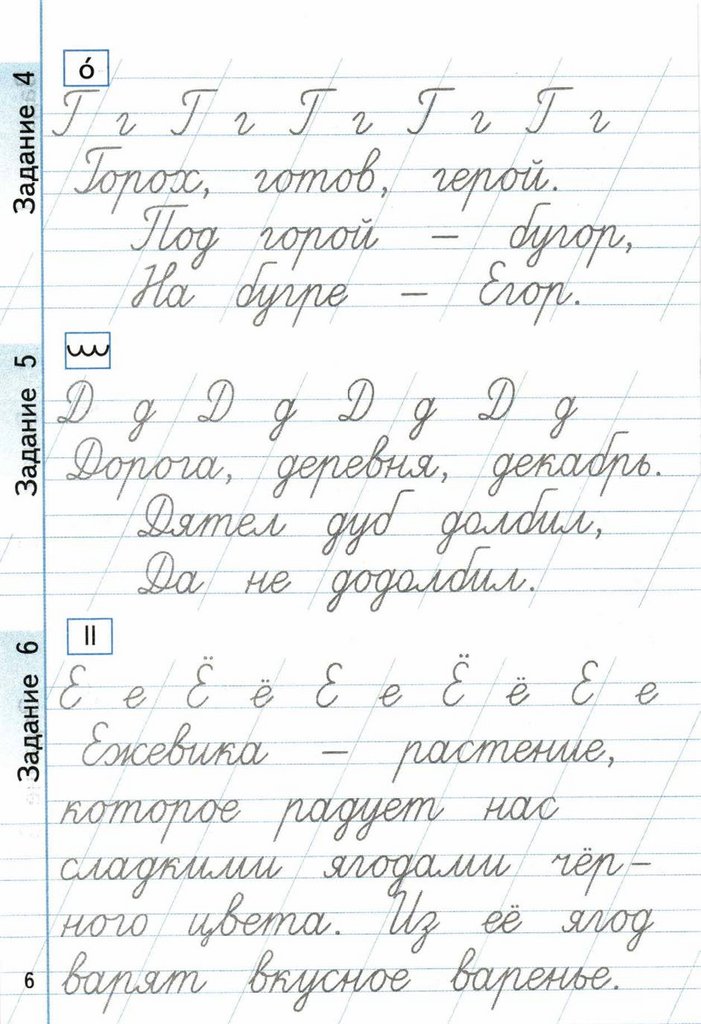 Задание 4
ó
Г г Г г Г г Г г Г г
Горох, готов, герой.
Под горой – бугор,
На бугре – Егор.
Задание 5
Д д Д д Д д Д д
Дорога, деревня, декабрь.
Дятел дуб долбил,
Да не додолбил.
Задание 6
Е е Ё ё Е е Ё ё Е е
Ежевика – растение,
которое радует нас
сладкими ягодами чёр-
ного цвета. Из её ягод
варят вкусное варенье.
6